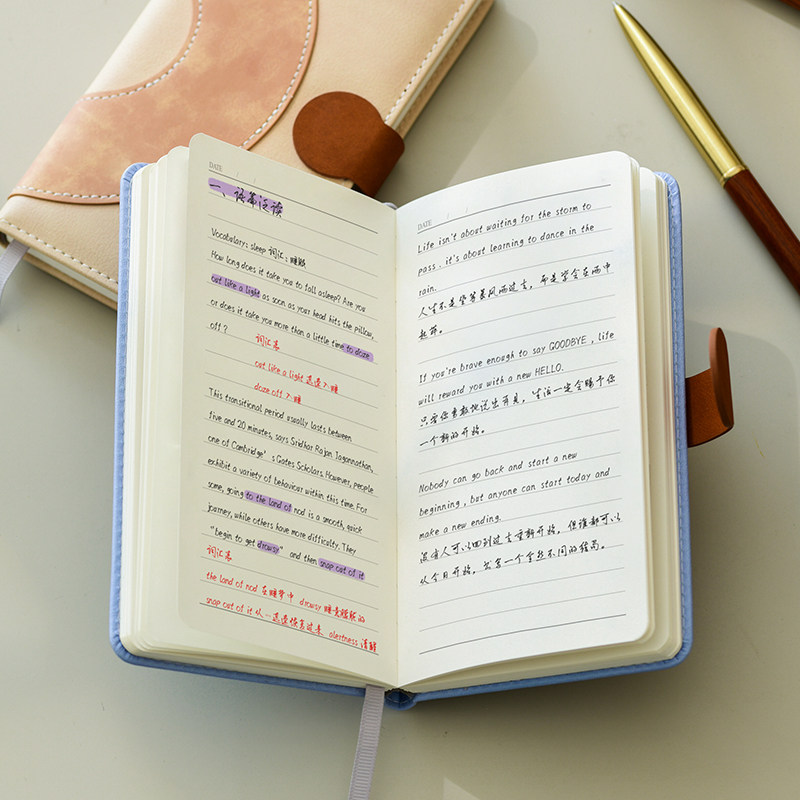 DATE
一、语篇泛读
Vocabulary: sleep 词汇:睡眠
How long does it take you to fall asleep? Are you
out like a light as soon as your head hits the pillow,
or does it take you more than a little time to doze
off?
词汇表
out like a light 迅速入睡
doze off 入睡
This transitional period usually lasts between
five and 20 minutes, says Sridhar Rajan Jagannathan,
one of Cambridge's Gates Scholars. However, people
exhibit a variety of behaviour within this time. For
some, going to the land of nod is a smooth, quick
journey, while others have more difficulty. They
"begin to get drowsy" and then snap out of it
词汇表
the land of nod 在睡梦中 drowsy 睡意朦胧的
snap out of it 从…迅速恢复过来 alertness 清醒
DATE / /
Life isn't about waiting for the storm to
pass. it's about learning to dance in the
rain.
人生不是等暴风雨过去,而是学会在雨中
起舞。
If you're brave enough to say GOODBYE, life
will reward you with a new HELLO.
只要你勇敢地说出再见,生活一定会赐予你
一个新的开始。
Nobody can go back and start a new
beginning, but anyone can start today and
make a new ending.
没有人可以回到过去重新开始,但谁都可以
从今日开始,书写一个全然不同的结局。